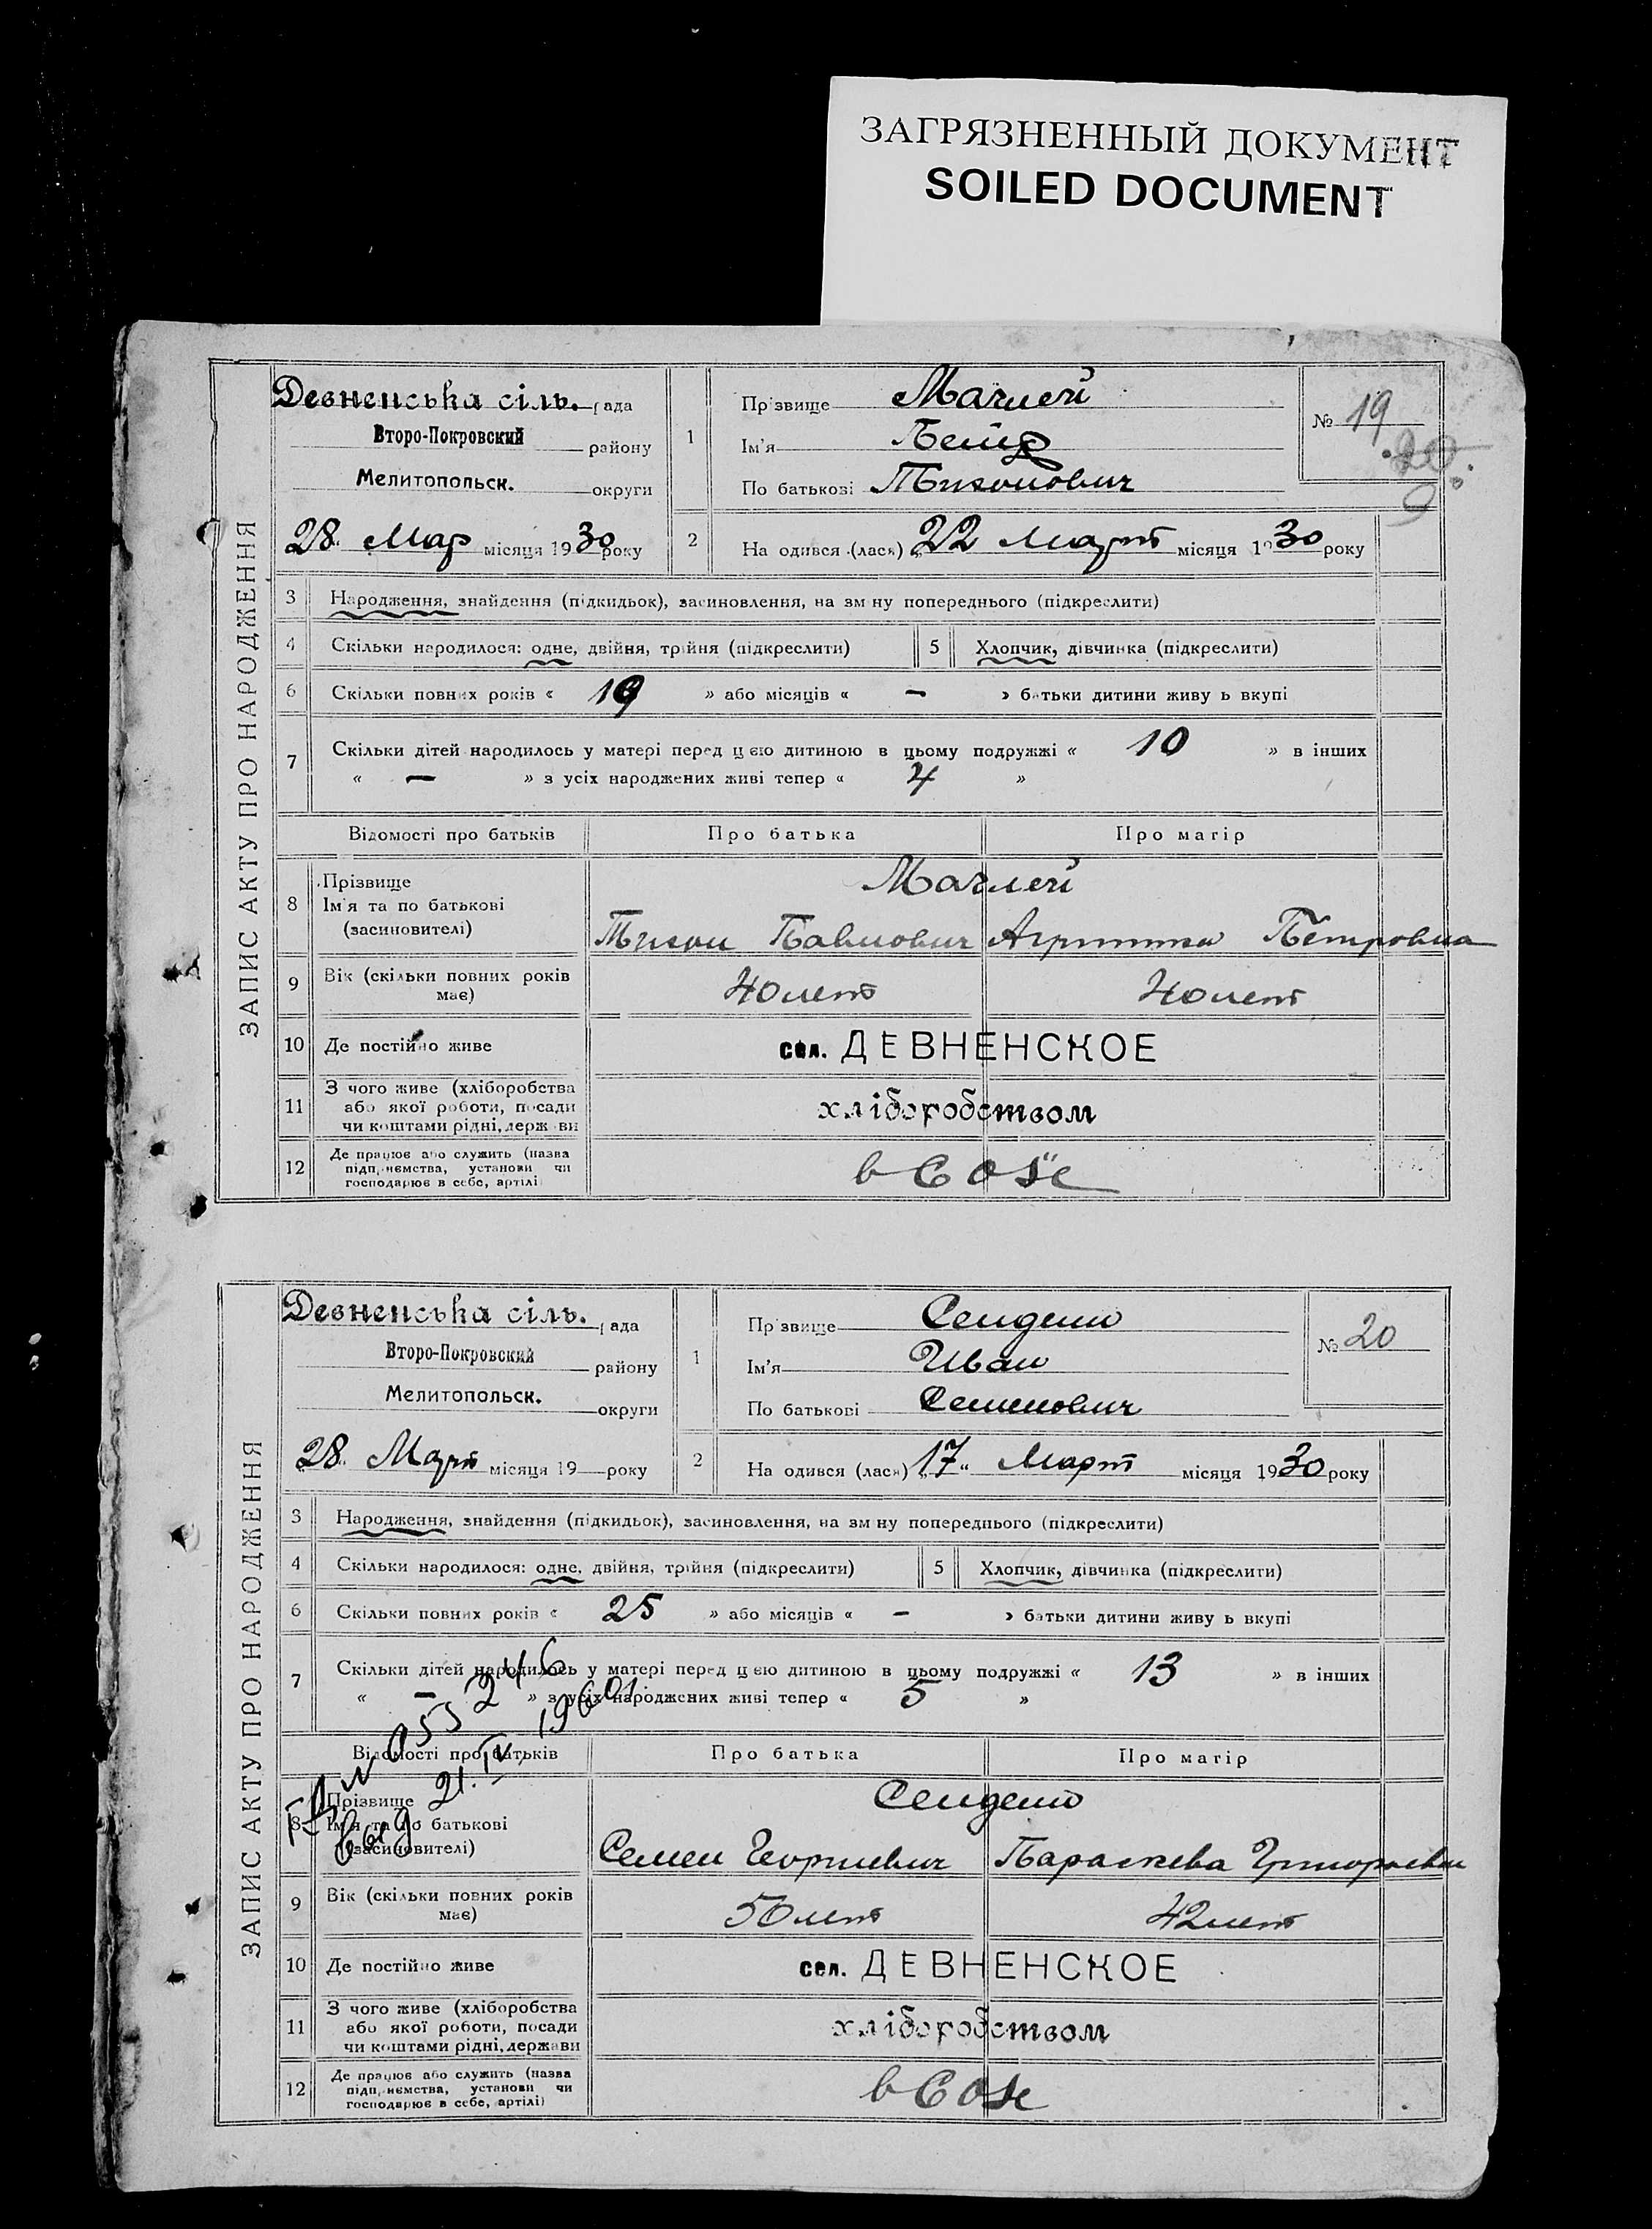 ЗАГРЯЗНЕННЫЙ ДОКУМЕНТ
SOILED DOCUMENT
ЗАПИС АКТУ ПРО НАРОДЖЕННЯ
Девненська сіль. рада
Второ-Покровский району
Мелитопольск. округи
28 Мар місяця 1930 року
1 Прізвище Мачлей
Ім'я Петр
По батькові Тихонович
№ 19
2 На одився (лася) 22 Март місяця 1930 року
3 Народження, знайдення (підкидьок), засиновлення, на зм ну попереднього (підкреслити)
4 Скільки народилося: одне, двійня, трійня (підкреслити) 5 Хлопчик, дівчинка (підкреслити)
6 Скільки повних років « 19 » або місяців « – » батьки дитини живу ь вкупі
7 Скільки дітей народилось у матері перед цією дитиною в цьому подружжі « 10 » в інших
« – » з усіх народжених живі тепер « 4 »
Відомості про батьків Про батька Про матір
8 Прізвище
Ім'я та по батькові
(засиновителі)
Мачлей
Тихон Павлович Петровна
9 Вік (скільки повних років
має)
40 лет 40 лет
10 Де постійно живе сел. ДЕВНЕНСКОЕ
11 З чого живе (хліборобства
або якої роботи, посади
чи коштами рідні, держави
хліборобством
12 Де працює або служить (назва
підприємства, установи чи
господарює в себе, артілі)
в Созе
ЗАПИС АКТУ ПРО НАРОДЖЕННЯ
Девненська сіль. рада
Второ-Покровский району
Мелитопольск. округи
28 Март місяця 19 року
1 Прізвище
Ім'я Иван
По батькові Семенович
№ 20
2 На одився (лася) 17 Март місяця 1930 року
3 Народження, знайдення (підкидьок), засиновлення, на зм ну попереднього (підкреслити)
4 Скільки народилося: одне, двійня, трійня (підкреслити) 5 Хлопчик, дівчинка (підкреслити)
6 Скільки повних років « 25 » або місяців « – » батьки дитини живу ь вкупі
7 Скільки дітей народилось у матері перед цією дитиною в цьому подружжі « 13 » в інших
« – » з усіх народжених живі тепер « 5 »
Відомості про батьків Про батька Про матір
8 Прізвище
Ім'я та по батькові
(засиновителі)
Семен Георгиевич Параскева Григорьевна
9 Вік (скільки повних років
має)
50 лет 42 лет
10 Де постійно живе сел. ДЕВНЕНСКОЕ
11 З чого живе (хліборобства
або якої роботи, посади
чи коштами рідні, держави
хліборобством
12 Де працює або служить (назва
підприємства, установи чи
господарює в себе, артілі)
в Созе